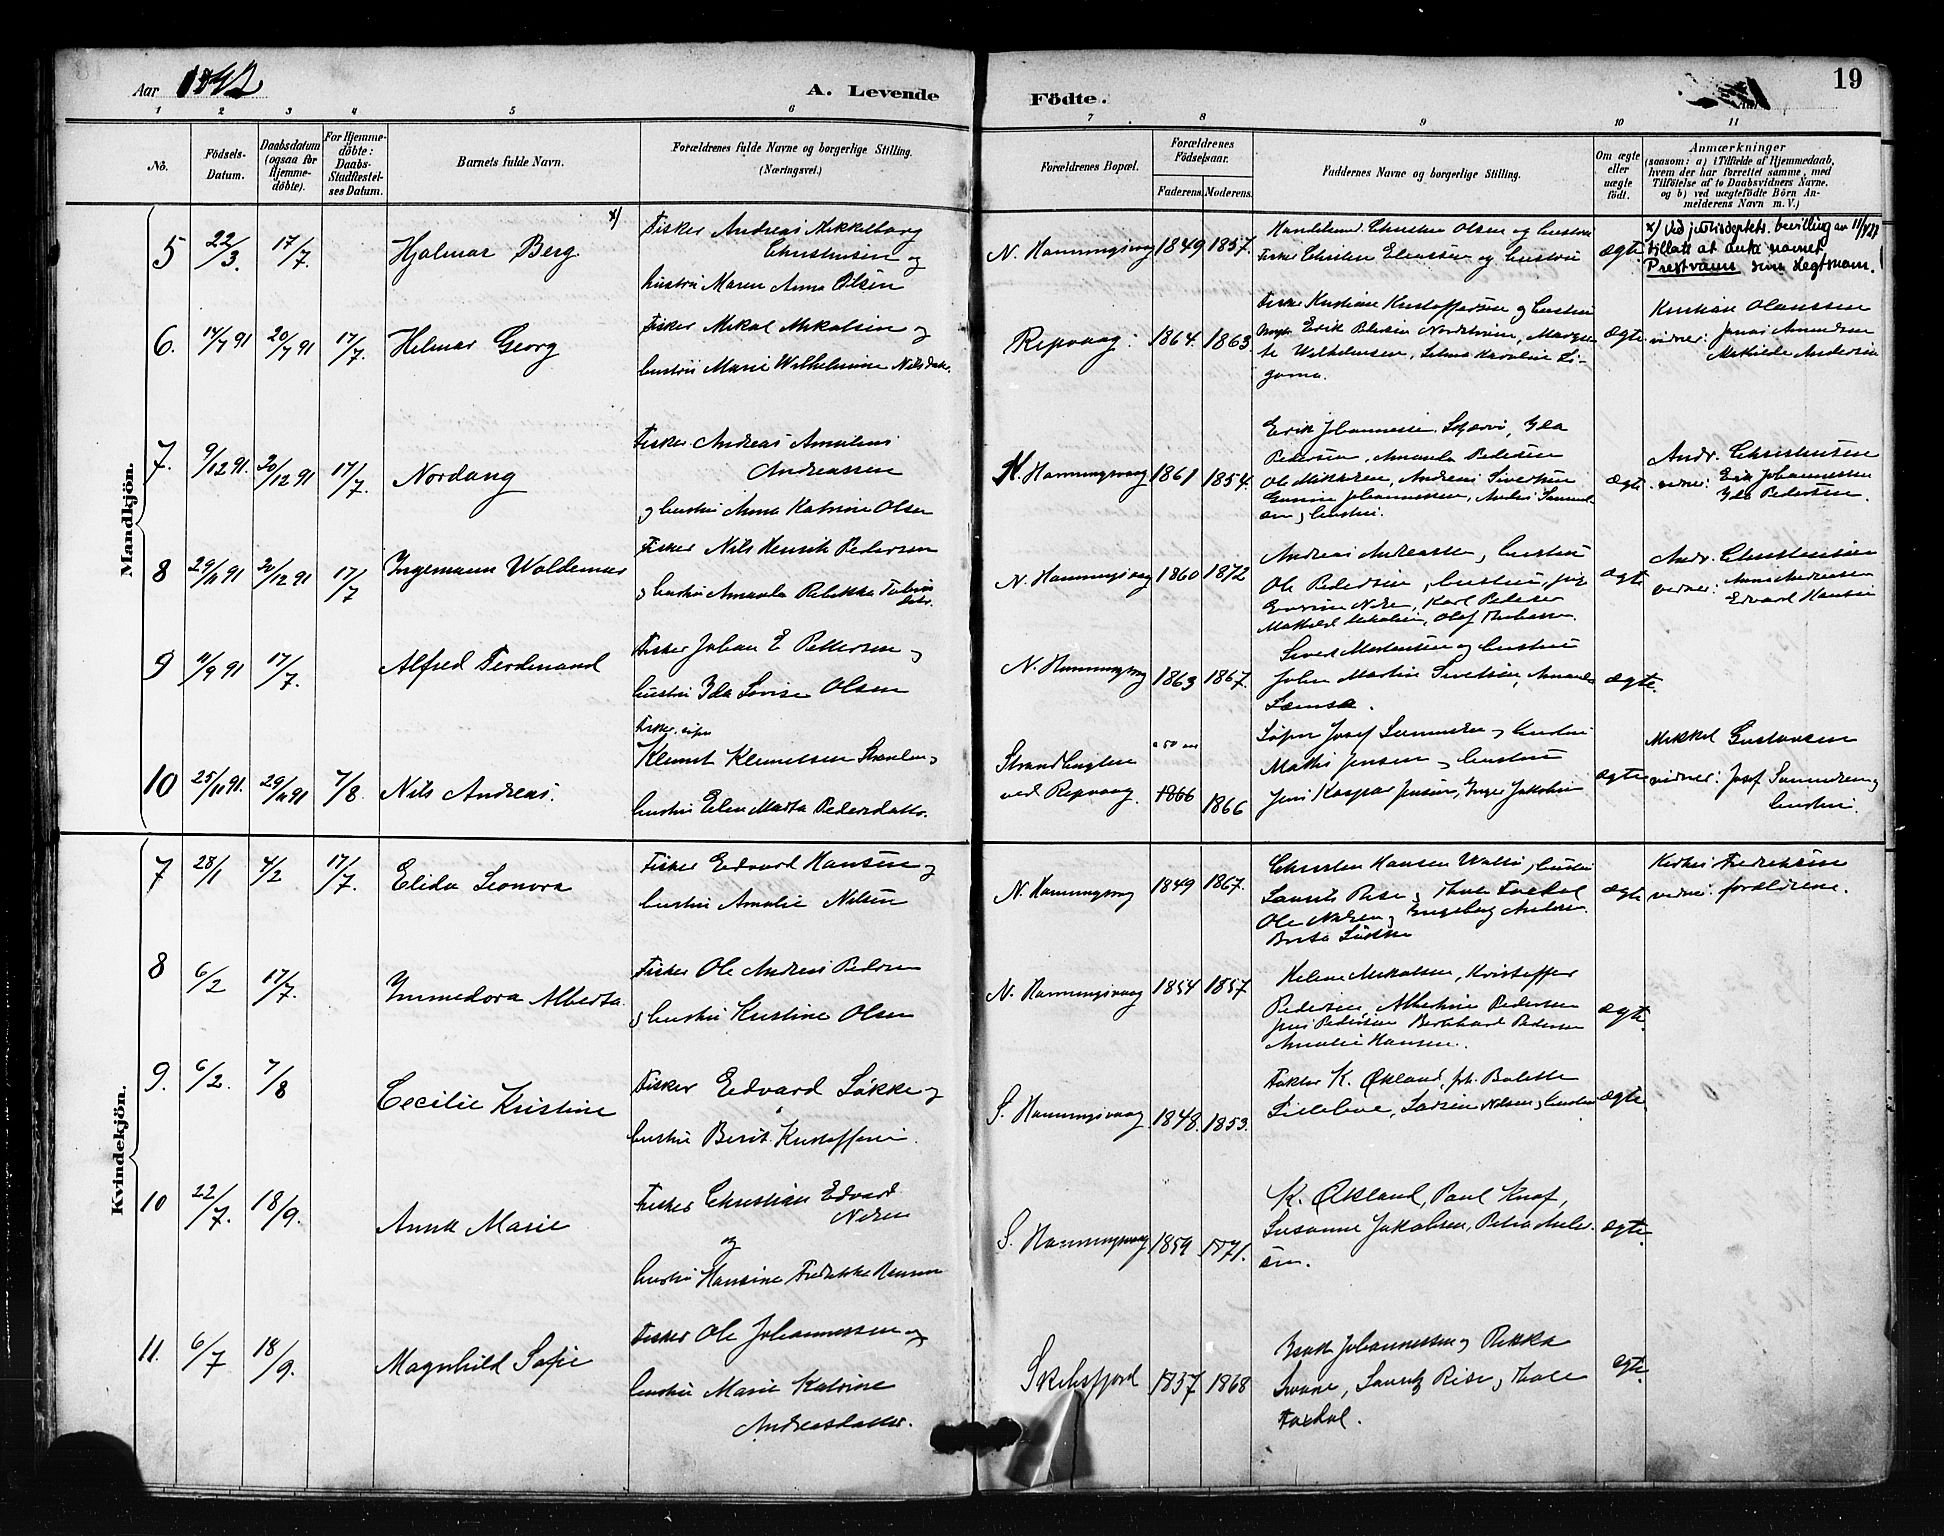 Aar 1892
A. Levende Födte.
19
1 2 3 4 5 6 7 8 9 10 11
No.
Födsels-Datum.
Daabsdatum (ogsaa for Hjemme-döbte).
For Hjemme-döbte: Daabs-Stadfæstel-ses Datum.
Barnets fulde Navn.
Forældrenes fulde Navne og borgerlige Stilling. (Næringsvei.)
Forældrenes Bopæl.
Forældrenes Födselsaar.
Faderens. Moderens.
Faddernes Navne og borgerlige Stilling.
Om ægte eller uægte födt.
Anmærkninger
(saasom: a) i Tilfælde af Hjemmedaab,
hvem der har forrettet samme, med
Tilföielse af to Daabsvidners Navne,
og b) ved uægtefödte Börn An-
melderens Navn m. V.)
Mandkjön.
5 22/3. 17/7. Hjalmar Berg x)
Fisker Andreas Mikkelborg
Christensen og
hustru Maren Anna Olsen
N. Honningsvaag 1849 1857.
Christen Olsen og hustru
Fisker Christen Eliassen og hustru
ægte
x) Ved justisdeptets. bevilling av
tillatt at anta navnet
Prestvann som slegtsnavn.
6. 14/7 91 20/7 91 17/7. Helmar Georg
Fisker Mikal Mikalsen og
hustru Marie Wilhelmine Nilsdatr.
Repvaag. 1864. 1863.
Fisker Kristian Kristoffersen og hustru
Erik Petersen
Wilhelmsen, Selma Karoline
ægte
Kristian Olaussen
vidner: Jonas Amundsen
Mathilde Andersen
7. 9/12 91. 20/12 91 17/7. Nordang
Fisker Andreas Amalius
Andreassen
og hustru Anna Katrine Olsen
N. Honningsvaag 1861 1854.
Erik Johannessen Skjervö, Ida
Pedersen, Amanda Pedersen
Ole Mikkelsen, Andreas Sivertsen
Johannessen,
og hustru.
ægte
Andr. Christensen
vidner: Erik Johannessen
Ida Pedersen.
8 29/11 91 20/12 91 17/7 Ingemann Waldemar
Fisker Nils Henrik Pedersen
og hustru Amanda Rebekka
N. Honningsvaag 1860 1872
Andreas Andreassen, hustru
Ole Pedersen, hustru,
Karl Pedersen
ægte
Andr. Christensen
vidner: Anna Andreassen
Edvard Hansen
9 11/9 91 17/7. Alfred Ferdinand
Fisker Johan E Pettersen og
hustru Ida Lovise Olsen
N. Honningsvaag 1863 1867.
Sivert Mortensen og hustru
John Martin Sivertsen, Amanda
ægte.
10 25/10 91. 29/11 91 7/8. Nils Andreas.
Fisker
Klemet Klemetsen
hustru Elen Marta Pedersdatter.
Strandbugten
ved Repvaag. 1866 1866
Josef Samuelsen og hustru
Mathis Jensen og hustru
Jens Kaspar Jensen, Inger Jakobsen
ægte
Mikkel Gustavsen
vidner: Josef Samuelsen og
hustru.
Kvindekjön.
7 28/1 4/2 17/7. Elida Leonora
Fisker Edvard Hansen og
hustru Amalie Nilsen
N. Honningsvaag 1849 1867.
Christen Hansen og hustru
Laurits Riise
Ole Nilsen og Ingeborg Andersen
ægte
Fredriksen
vidner: forældrene.
8 6/2 17/7. Immedora Alberta
Fisker Ole Andreas Pedersen
og hustru Kristine Olsen
N. Honningsvaag 1854 1857
Helene Mikalsen, Kristoffer
Pedersen, Albertine Pedersen
Jens Pedersen Bernhard Pedersen
Amalie Hansen.
ægte.
9. 6/2. 7/8 Cecilie Kristine
Fisker Edvard Løkke og
hustru Berit Kristoffersen.
S. Honningsvaag 1848. 1853.
Faktor K. Økland, frk. Bolette
Lillebøe, Nilsen og hustru
ægte.
10 22/7. 18/9. Anna Marie
Fisker Christian Edvard
Nilsen
og
hustru Hansine Fredrikke Hansen
S. Honningsvaag 1859 1871.
K. Økland, Paul Knof,
Susanne Jakobsen, Petra
sen.
ægte.
11. 6/7 18/9. Magnhild Sofie
Fisker Ole Johannessen og
hustru Marie Katrine
Andreasdatter.
Skibsfjord 1837 1868
Johannessen og Rikka
Svane, Lauritz Riise,
ægte.